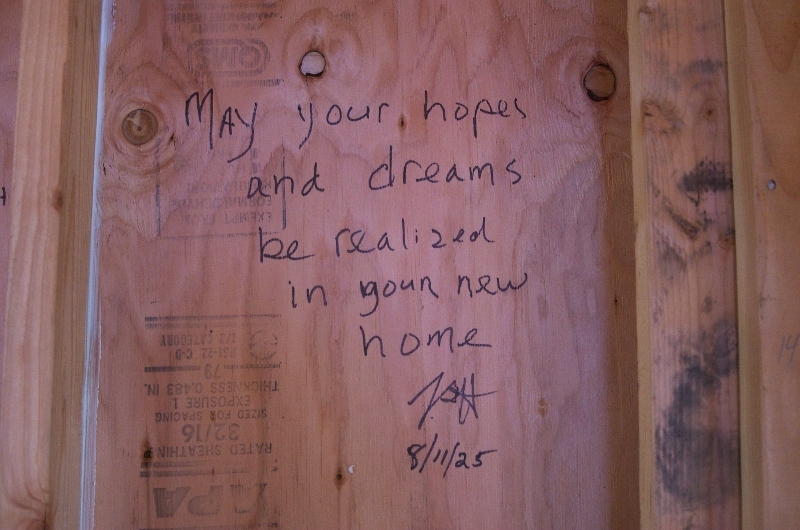 MAY your hopes
and dreams
be realized
in your new
home
8/11/25
APA
RATED SHEATHING
32/16
SIZED FOR SPACING
EXPOSURE 1
THICKNESS 0.483 IN.
79
PS1-22 C-D
1/2 CATEGORY